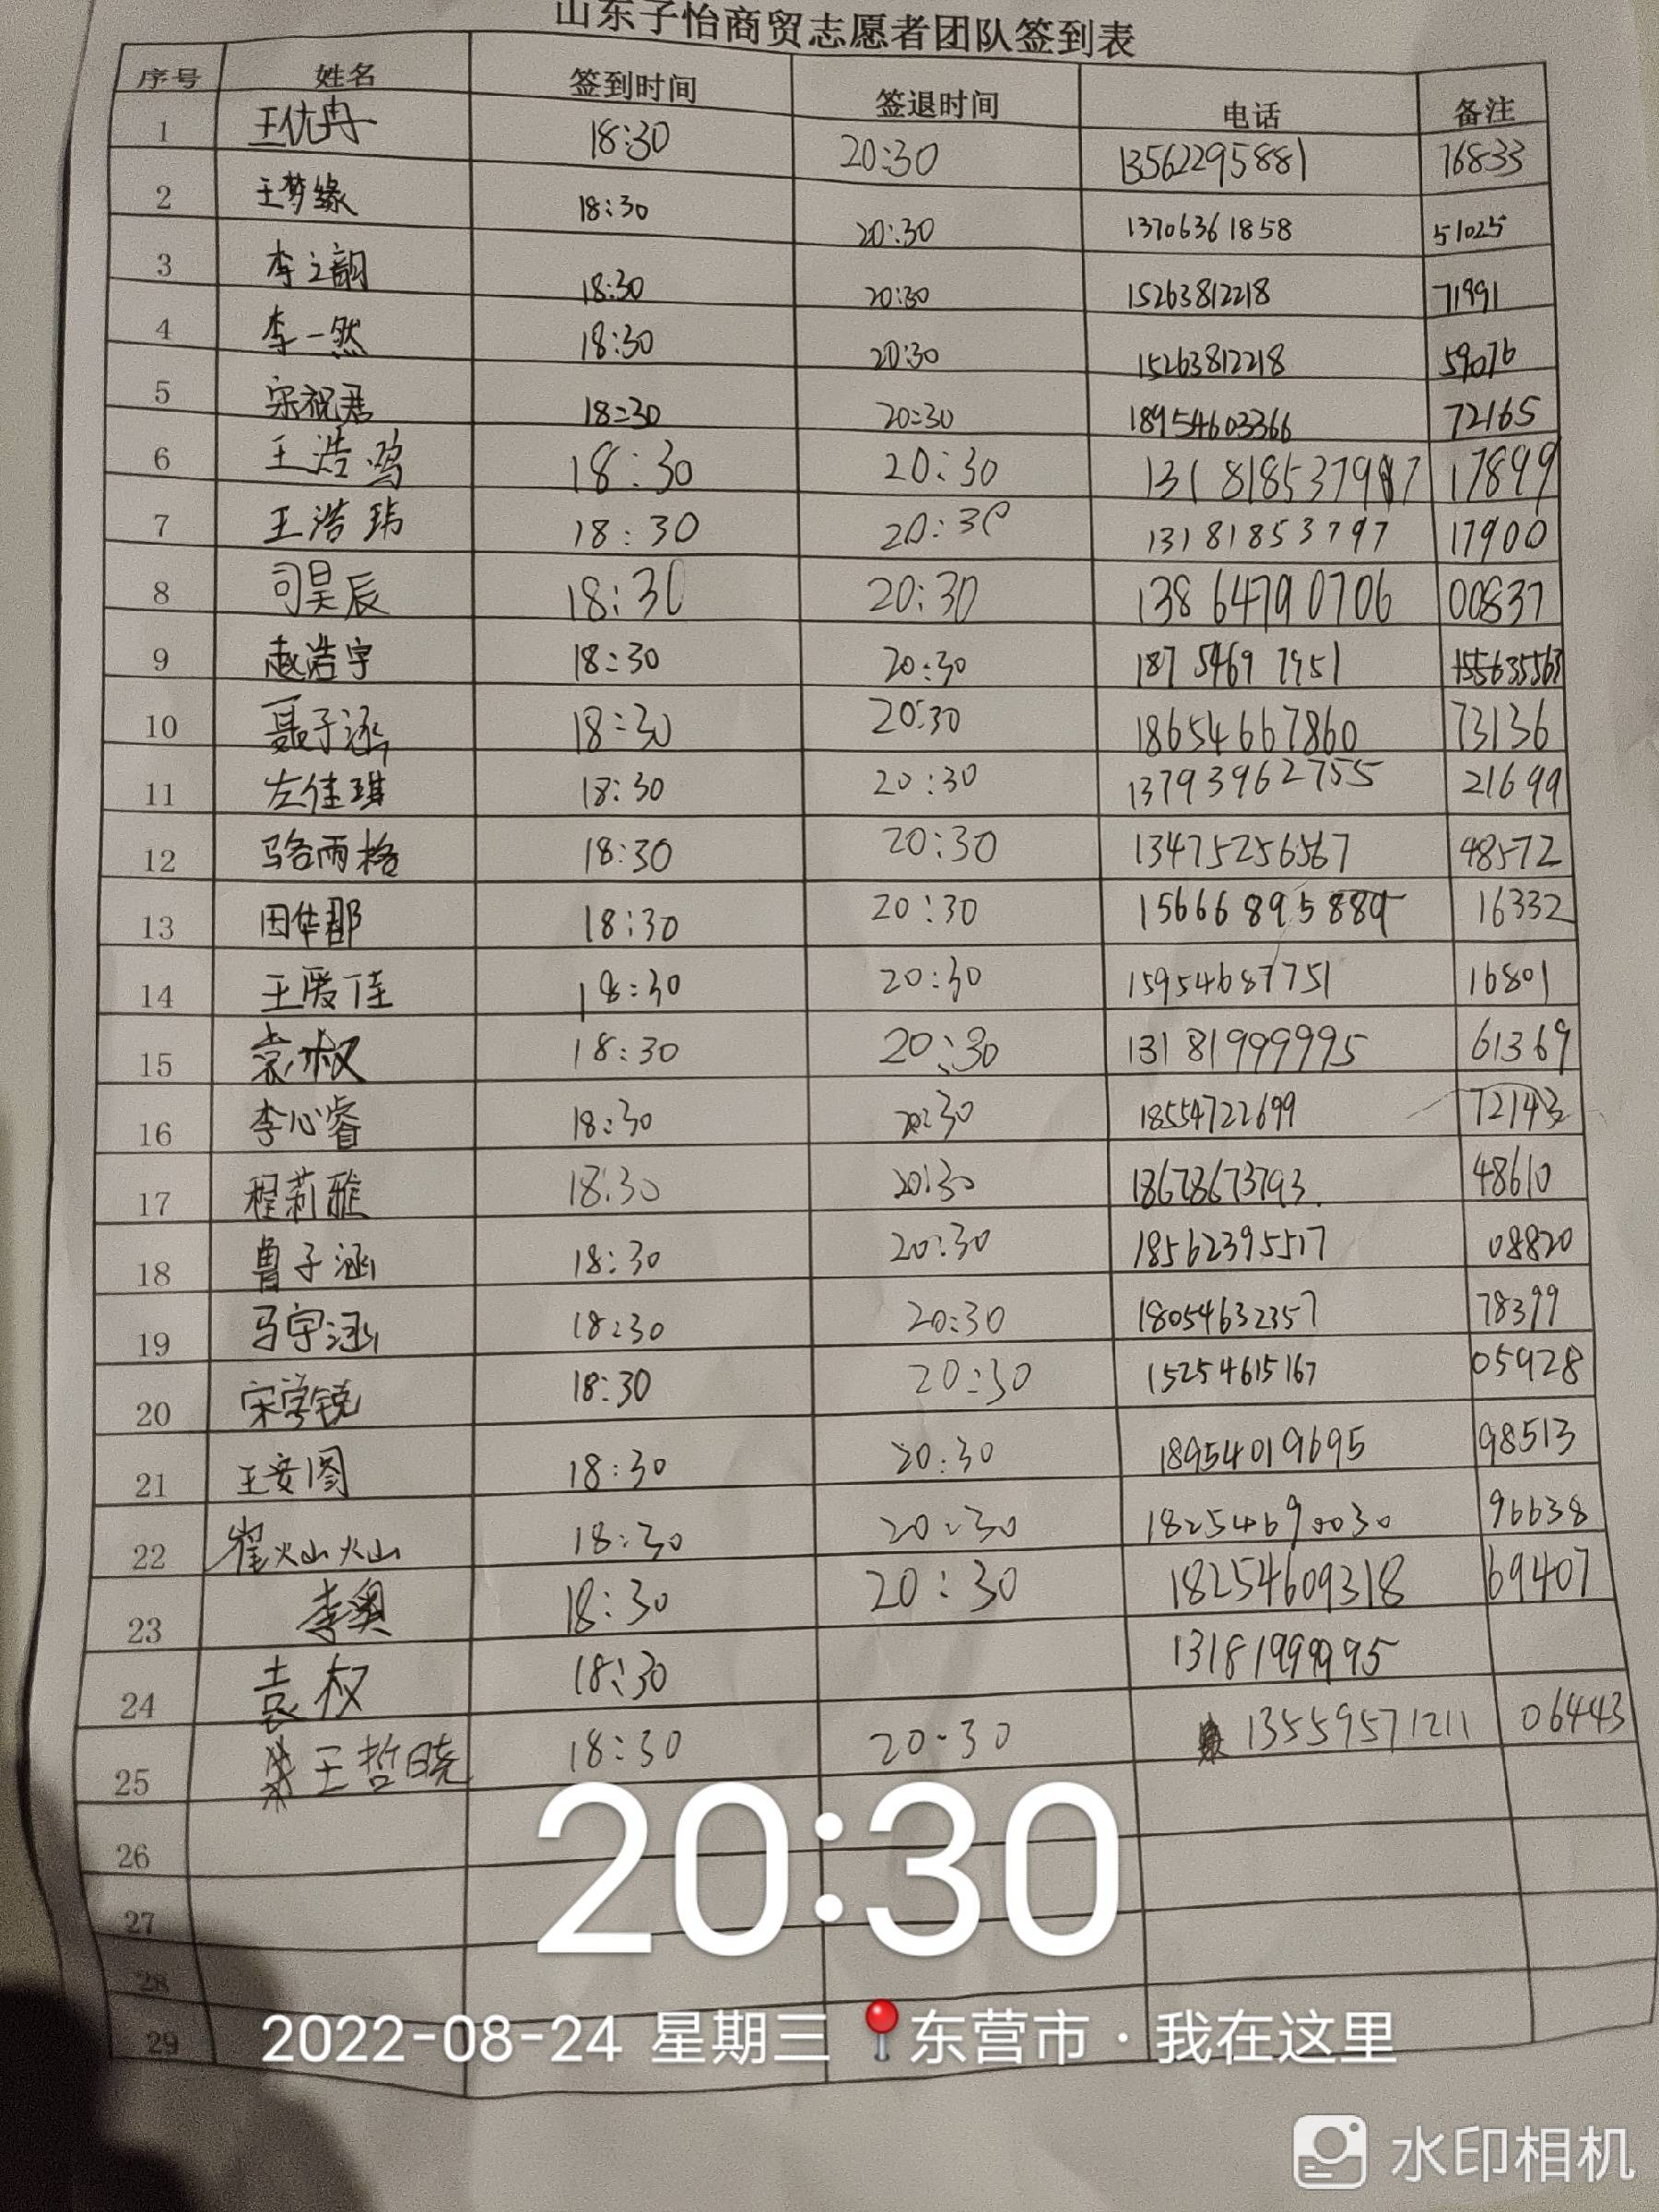 山东子怡商贸志愿者团队签到表
序号 姓名 签到时间 签退时间 电话 备注
1 王优冉 18:30 20:30 13562295881 76833
2 王梦缘 18:30 20:30 13706361858 51025
3 李之韵 18:30 20:30 15263812218 71991
4 李一然 18:30 20:30 15263812218 59076
5 宋祝君 18:30 20:30 18954603366 72165
6 王浩鸣 18:30 20:30 17899
7 王浩玮 18:30 20:30 13181853797 17900
8 司昊辰 18:30 20:30 13864790706 00837
9 赵浩宇 18:30 20:30 18754697951
10 聂子涵 18:30 20:30 18654667860 73136
11 左佳琪 18:30 20:30 13793962755 21699
12 骆雨格 18:30 20:30 13475256567 48572
13 田华郡 18:30 20:30 16332
14 王爱佳 18:30 20:30 15954687751 16801
15 袁权 18:30 20:30 13181999995 61369
16 李心睿 18:30 20:30 18554722699 72143
17 程莉雅 18:30 20:30 18678673793 48610
18 鲁子涵 18:30 20:30 18562395517 08820
19 马宇涵 18:30 20:30 18054632357 78399
20 宋学锐 18:30 20:30 15254615167 05928
21 王安图 18:30 20:30 18954019695 98513
22 崔火山火山 18:30 20:30 18254690030 96638
23 李奥 18:30 20:30 18254609318 69407
24 袁权 18:30 13181999995
25 王哲晓 18:30 20:30 13559571211 06443
26
27
28
29
20:30
2022-08-24 星期三 东营市·我在这里
水印相机